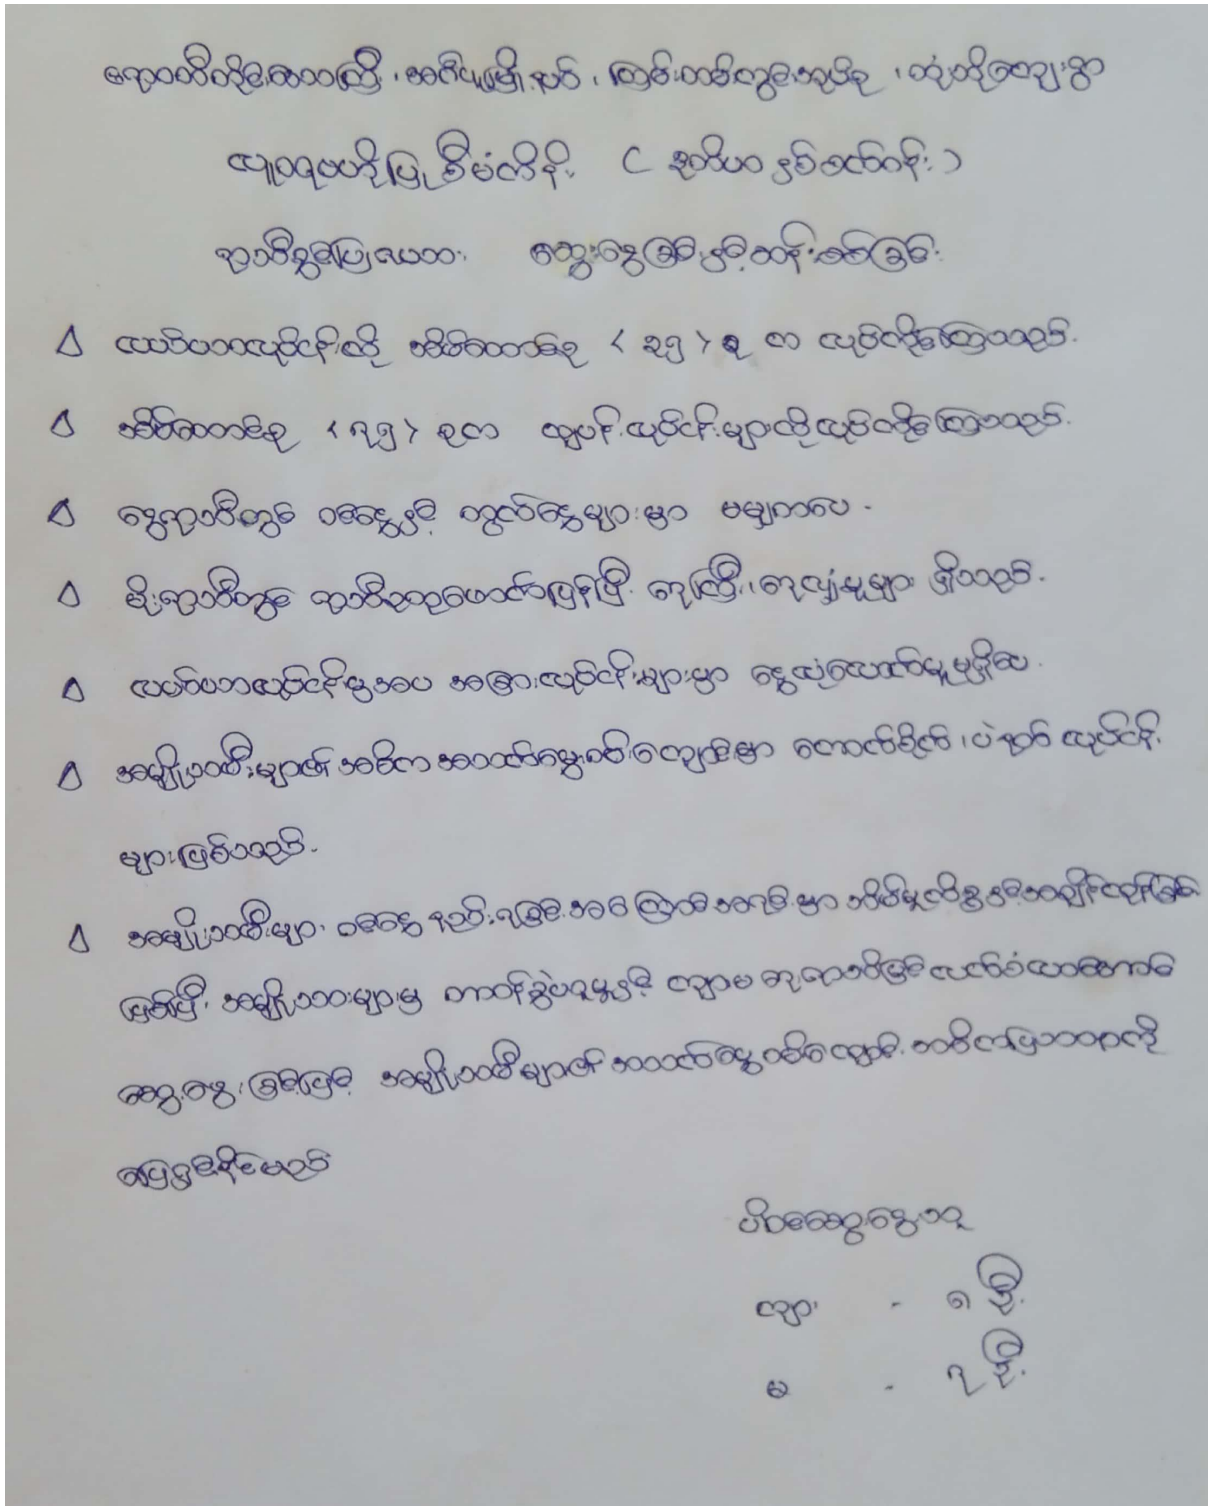 ဧရာဝတီတိုင်းဒေသကြီး ၊ အင်္ဂပူမြို့နယ် ၊ ကြမ်းတစ်ကျေးရွာအုပ်စု ၊ ကျေးရွာ
လူထုဗဟိုပြု စီမံကိန်း ( ဒုတိယ နှစ်စက်ဝန်း )
ရာသီခွင်ပြဇယား ဆွေးနွေးခြင်းနှင့်ဆန်းစစ်ခြင်း
△ လယ်ယာလုပ်ငန်းကို အိမ်ထောင်စု < ၃၅ > စု က လုပ်ကိုင်ကြသည်.
△ အိမ်ထောင်စု < ၇၅ > စုက ကျပန်းလုပ်ငန်းများကိုလုပ်ကိုင်ကြသည်.
△ နွေရာသီတွင် ဝင်ငွေနှင့် ထွက်ငွေများမှာ မမျှတပေ.
△ မိုးရာသီတွင် ရာသီဥတုဖောက်ပြန်ပြီး ရေကြီး၊ရေလျှံမှုများ ရှိသည်.
△ လယ်ယာလုပ်ငန်းမှအပ အခြားလုပ်ငန်းများမှာ ငွေလုံလောက်မှုမရှိပေ.
△ အမျိုးသမီးများ၏ အဓိက အသက်မွေးဝမ်းကျောင်းမှာ ကောက်စိုက် ၊ ပဲနုတ် လုပ်ငန်း
များဖြစ်သည်.
△ အမျိုးသမီးများ ဝင်ငွေ နည်းရခြင်း အကြောင်းအရင်းမှာ အိမ်မှုကိစ္စနှင့်အချိန်ကုန်ခြင်း
ဖြစ်ပြီး အမျိုးသားများမှ တာဝန်ခွဲဝေယူမှုနှင့် ကျားမ တူရာသီဖြင့် လက်ခံလာအောင်
ဆွေးနွေးခြင်းဖြင့် အမျိုးသမီးများ၏ အသက်မွေးဝမ်းကျောင်း အဓိကပြဿနာကို
ဖြေရှင်းနိုင်မည်
ပါဝင်ဆွေးနွေးသူ
ကျား - ၈ ဦး
မ - ၇ ဦး